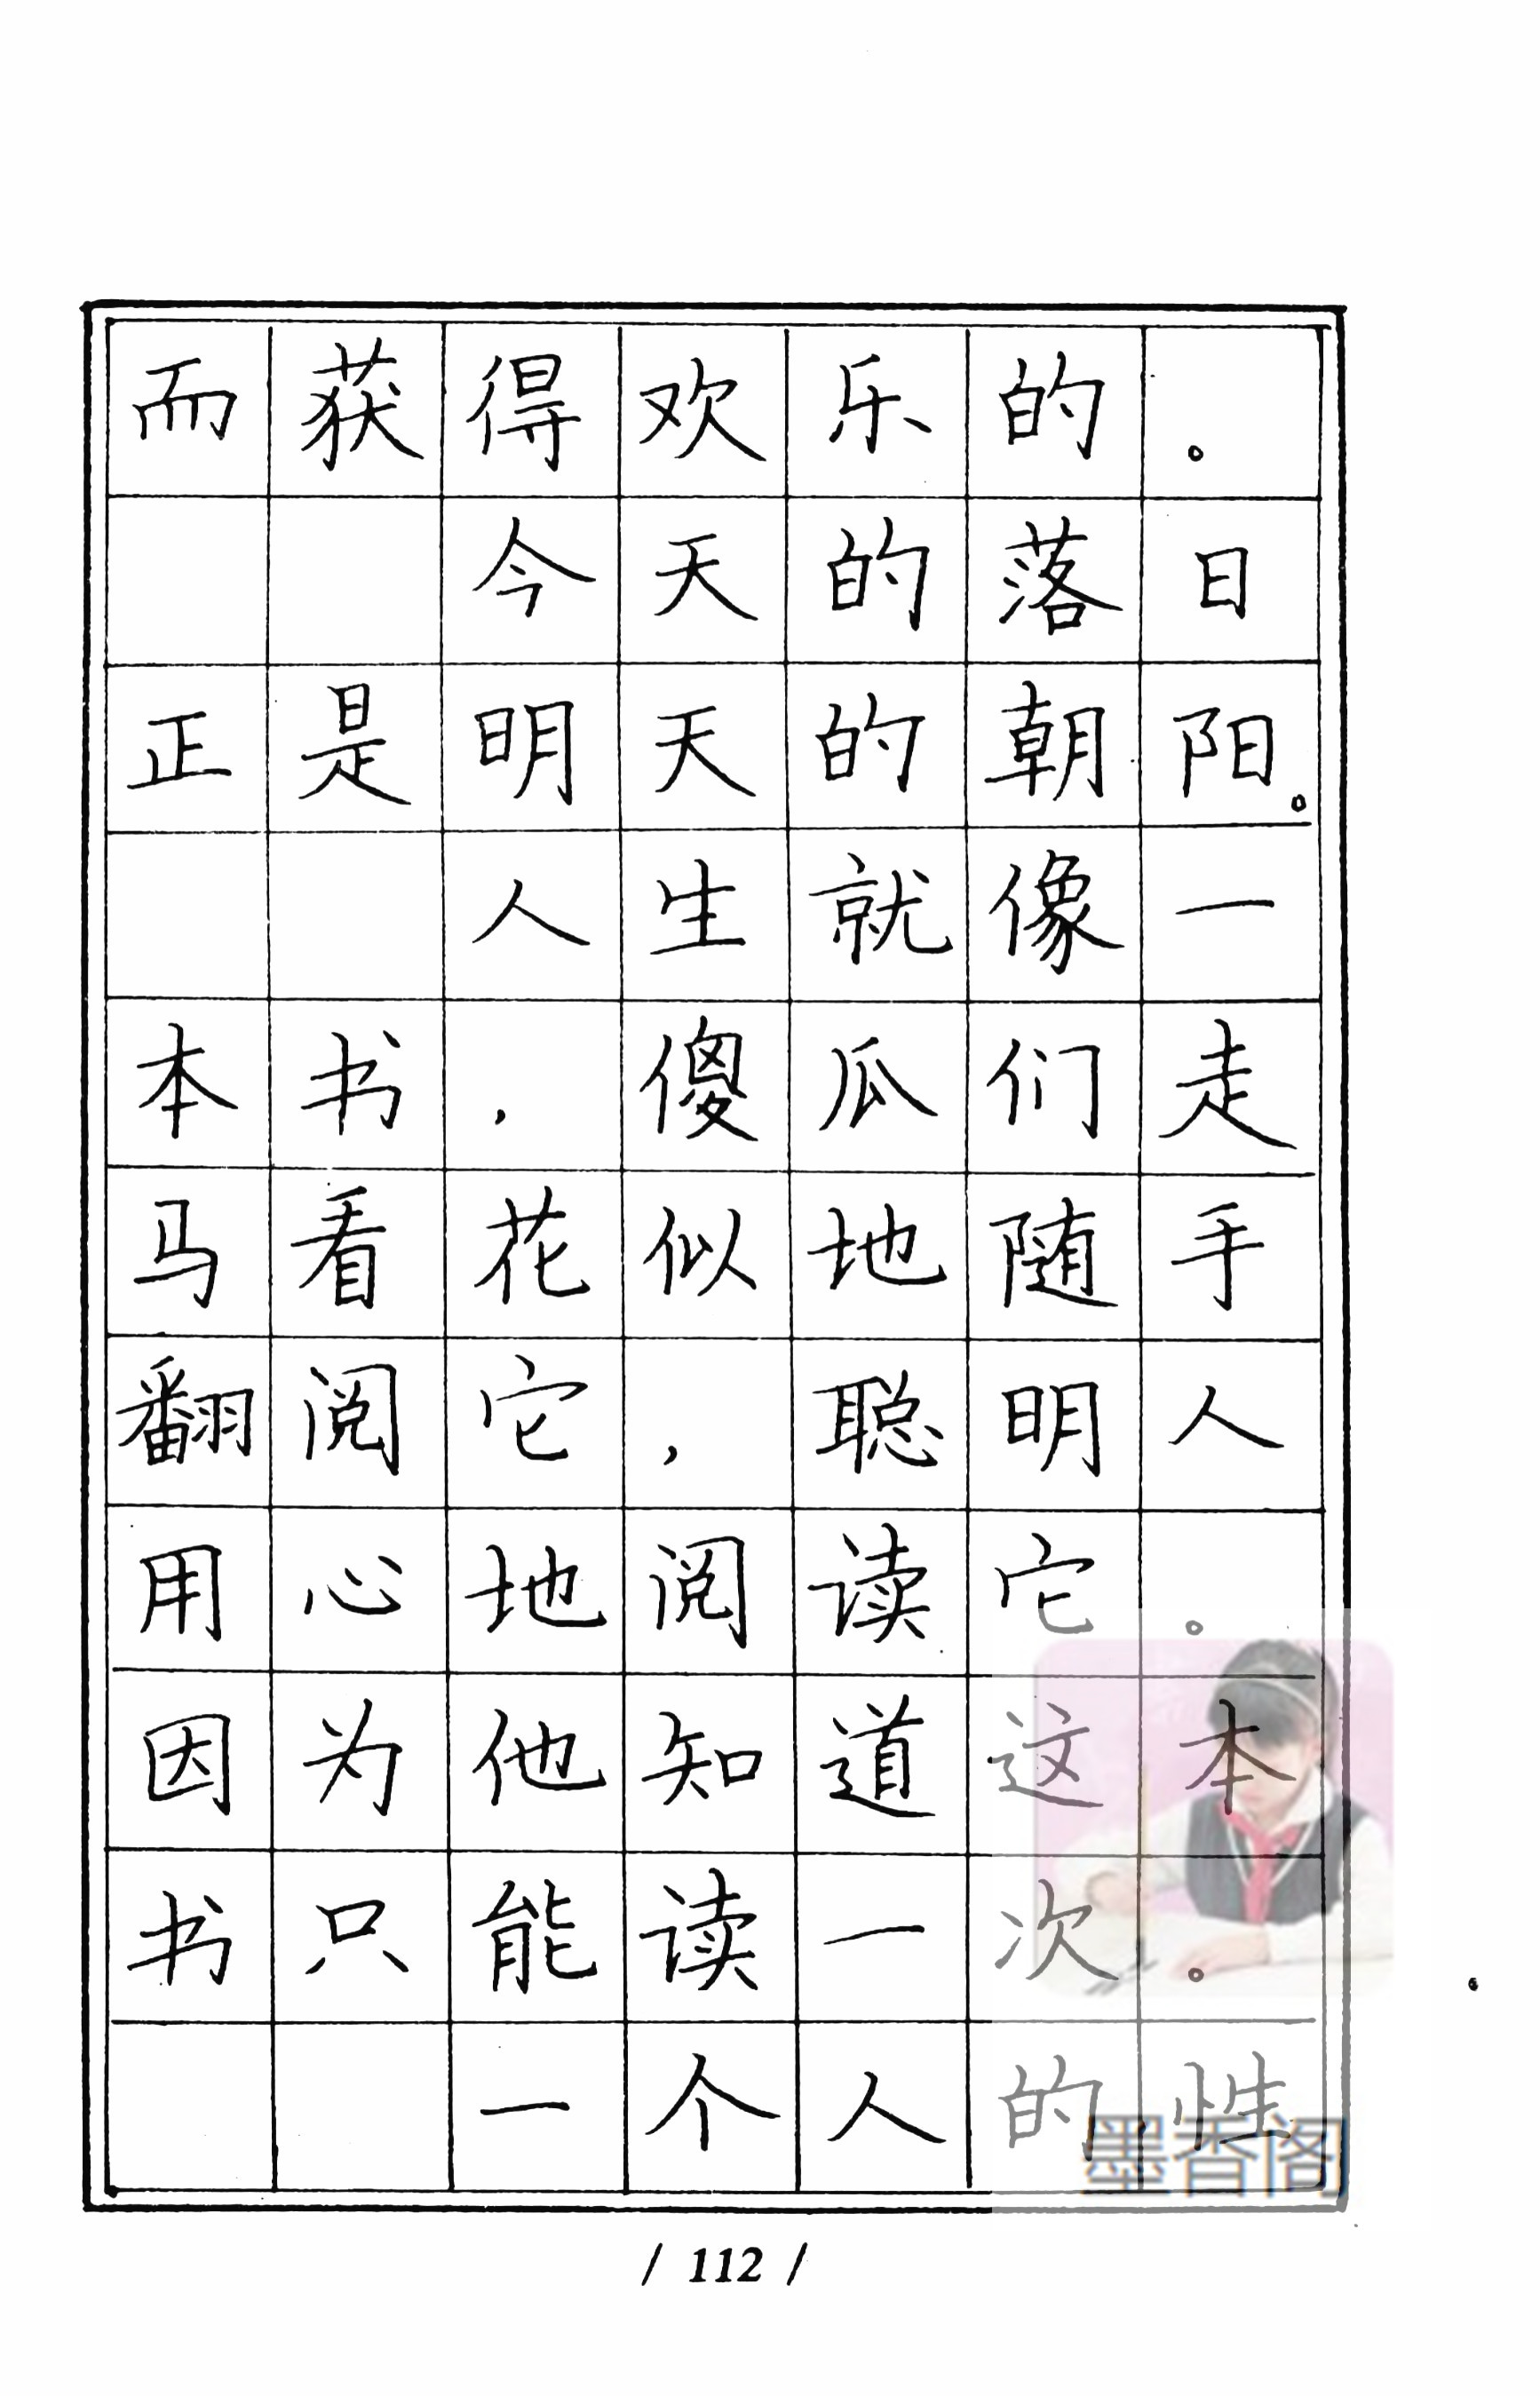 而获得欢乐的。
今天的落日
正是明天的朝阳。
人生就像一
本书，傻瓜们走
马看花似地随手
翻阅它，聪明人
用心地阅读它。
因为他知道这本
书只能读一次。
一个人的性
墨香阁
/ 112 /